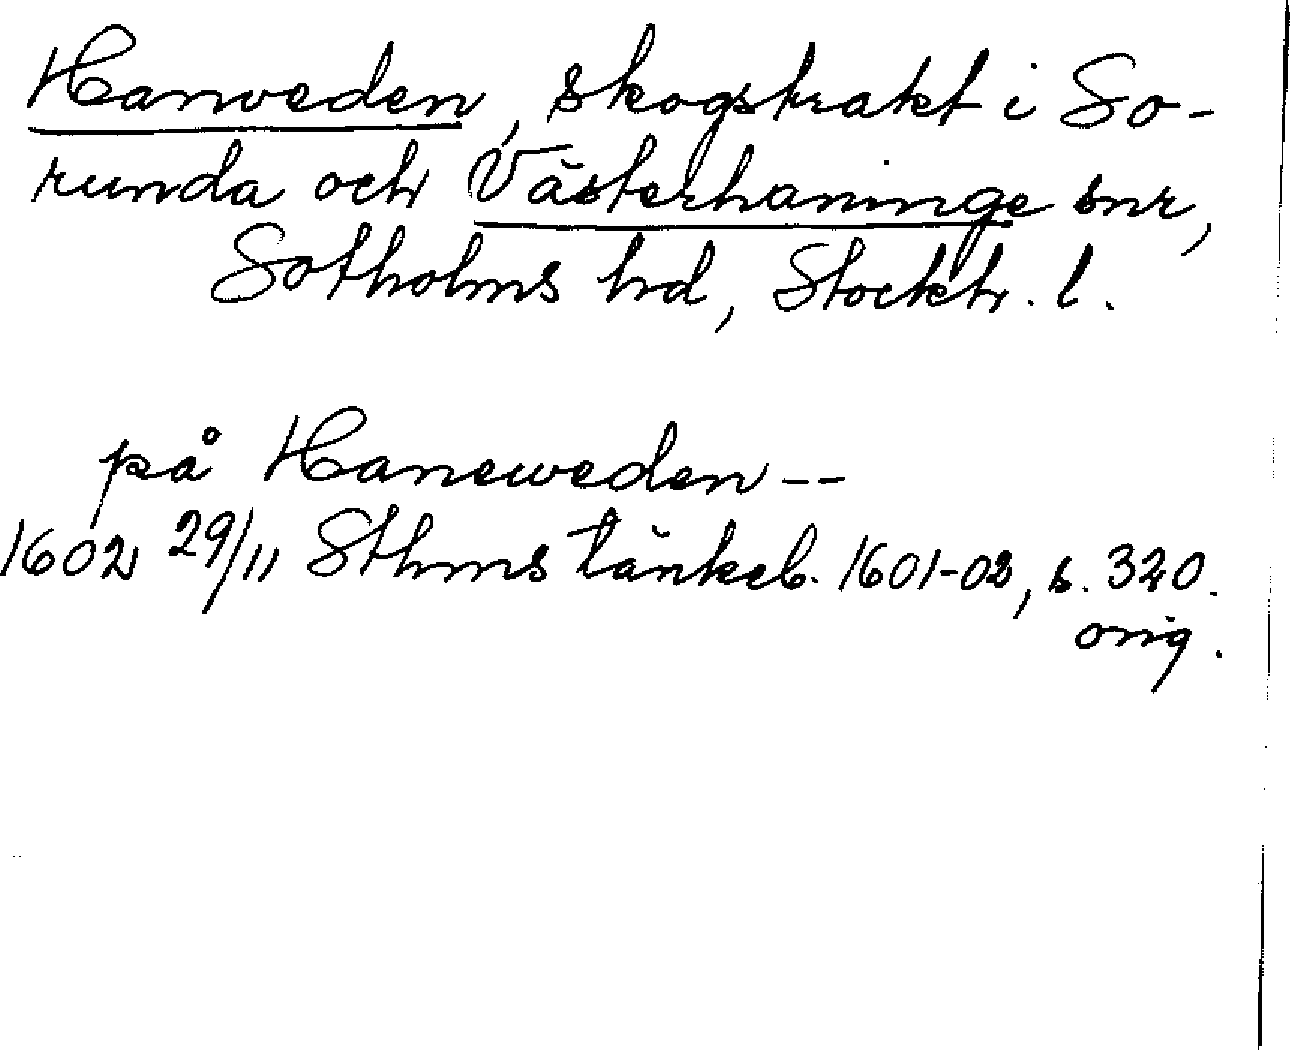 Hanveden, skogstrakt i So-
runda och Västerhaninge snr,
Sotholms hd, Stockh. l.
på Haneweden --
1602 29/11 Sthms tänkeb. 1601-02, s. 320.
orig.